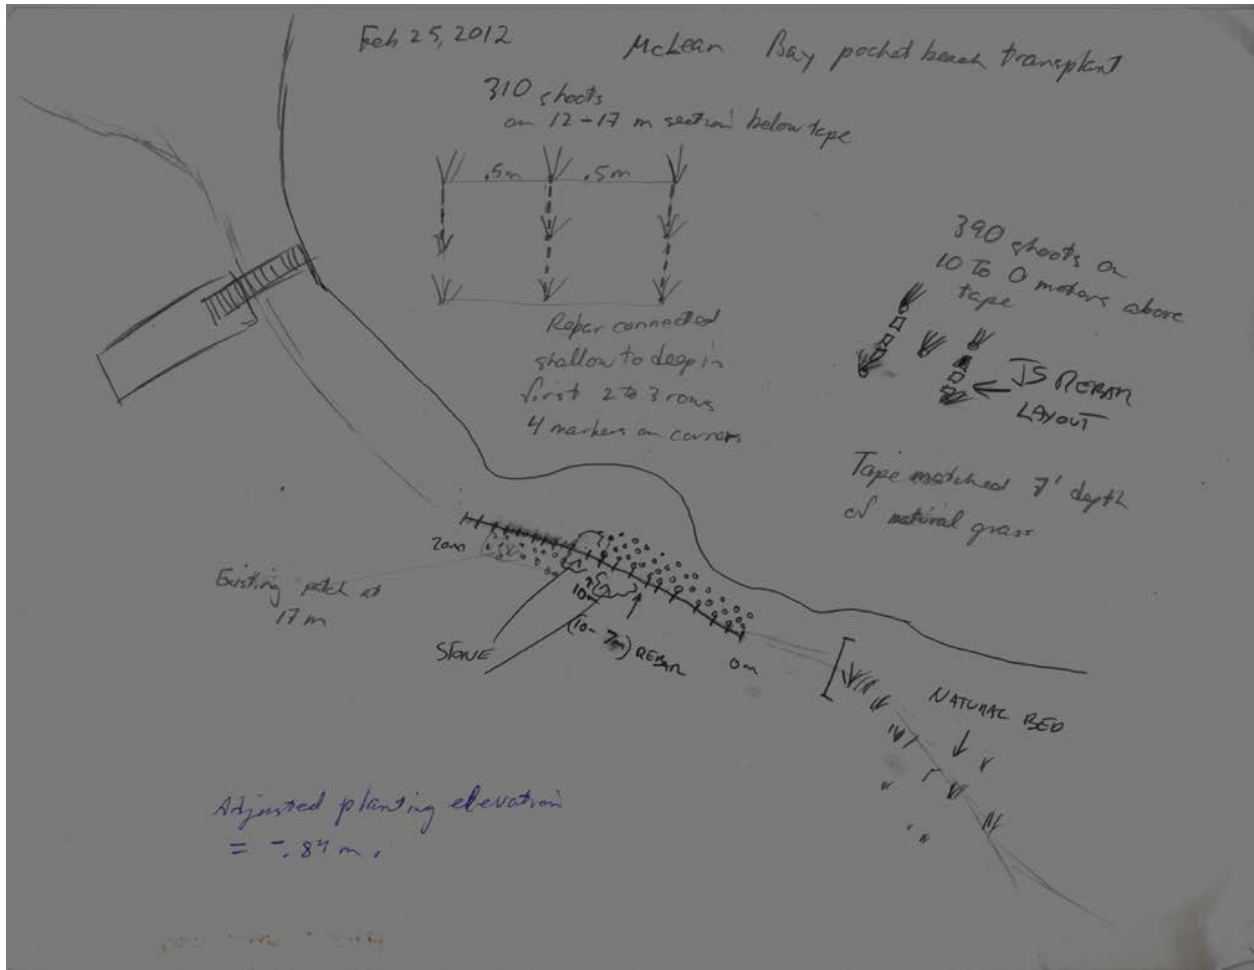 Feb 25, 2012
McLean Bay pocket beach transplant
310 shoots
on 12-17 m section below tape
.5m .5m
Rebar connected
shallow to deep in
first 2 to 3 rows
4 markers on corners
390 shoots on
10 to 0 meters above
tape
JS REBAR
LAYOUT
Tape matched 7' depth
of natural grass
20m
Existing patch at
17 m
10m
STONE
(10- 7m) REBAR
0m
NATURAL BED
Adjusted planting elevation
= -.84 m.